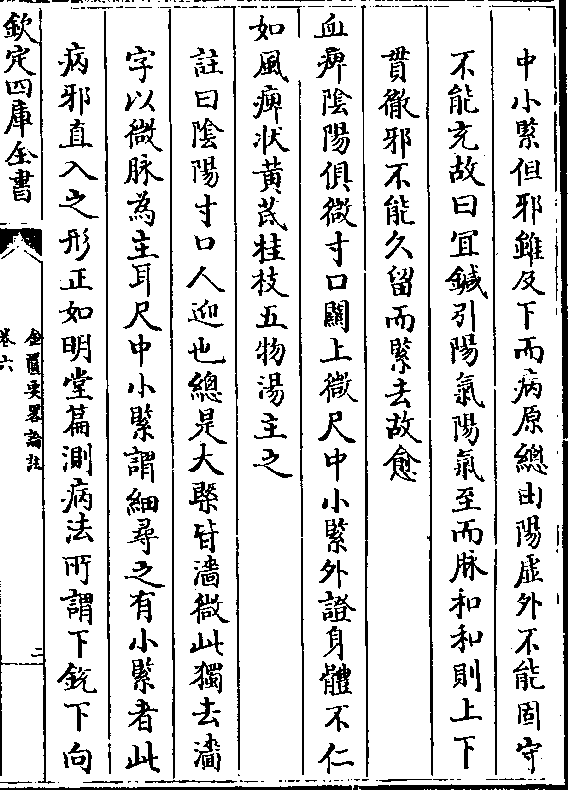 中小緊但邪雖及下而病原總由陽虛外不能固守
不能充故曰宜鍼引陽氣陽氣至而脉和和則上下
貫徹邪不能久留而緊去故愈
血痺陰陽俱微寸口關上微尺中小緊外證身體不仁
如風痺狀黄茋桂枝五物湯主之
註曰陰陽寸口人迎也總是大槩皆濇微此獨去濇
字以微脉為主耳尺中小緊謂細尋之有小緊者此
病邪直入之形正如明堂篇測病法所謂下銳下向
欽定四庫全書
金匱要畧論註
卷六
二